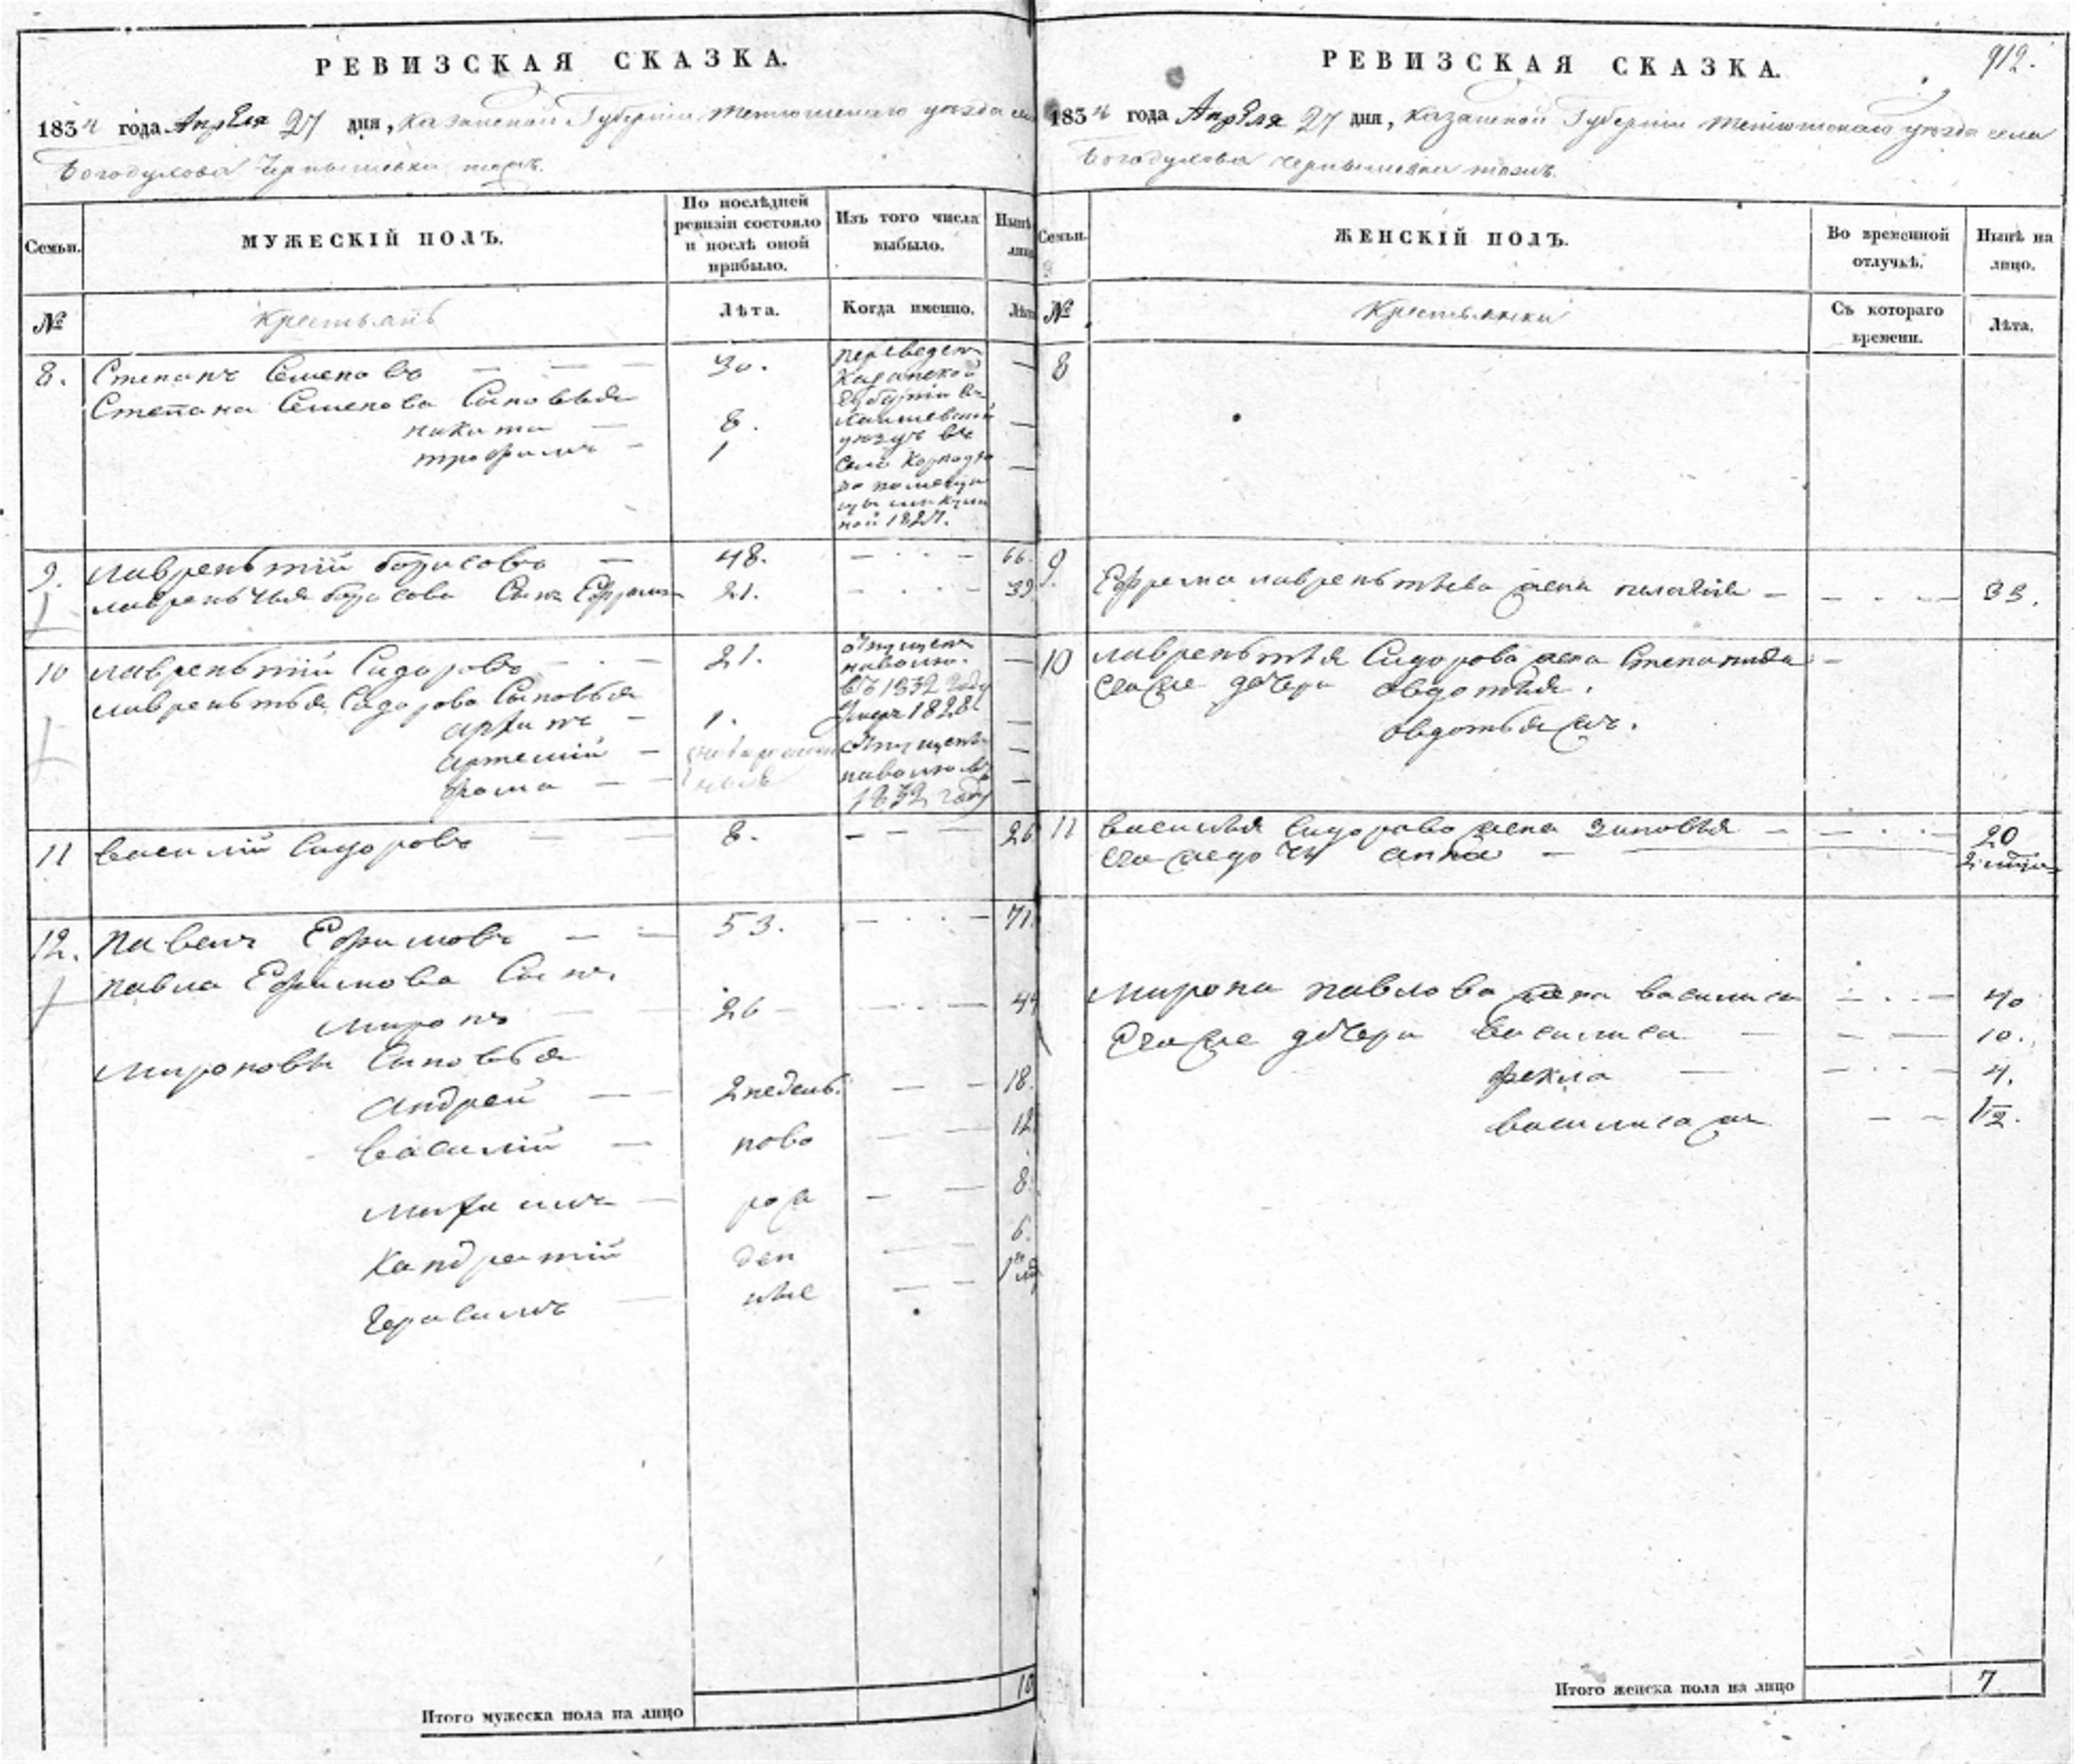 РЕВИЗСКАЯ СКАЗКА.
1834 года Апреля 27 дня, Казанской Губернии Тетюшскаго уезда
Богодулова Чернышевка тожъ.
Семьи.
МУЖЕСКІЙ ПОЛЪ.
По послѣдней ревизіи состояло и послѣ оной прибыло.
Изъ того числа выбыло.
Нынѣ
№
Крестьянъ
Лѣта.
Когда именно.
Лѣта
8. Степанъ Семеновъ 30. переведенъ
Степана Семенова Сыновья Казанской
Губернии въ
никита 8. Лаишевской
трофимъ 1 уездъ въ
село
помещи
цы
ной 1827.
9. лаврентій борисовъ 48. 66.
лаврентья борисова Сынъ Ефремъ 21. 39
10 лаврентій Сидоровъ 21. отпущенъ
наволю.
въ 1832 году
лаврентья Сидорова Сыновья
архипъ 1. умеръ 1828
артемій новорожден отпущенъ
фома ные наволю въ
1832 году
11 василій Сидоровъ 8. 26
12. павелъ Ефимовъ 53. 71.
павла Ефимова Сынъ.
миронъ 26 44
Мироновы Сыновья
андрей 2 недель. 18.
василій ново 12
михаилъ рож 8.
кандратій ден 6.
герасимъ ные 1
Итого мужеска пола на лицо 10
РЕВИЗСКАЯ СКАЗКА.
912.
1834 года Апреля 27 дня, Казанской Губернии Тетюшскаго уезда села
Богодулова Чернышевка тожъ.
Семьи.
ЖЕНСКІЙ ПОЛЪ.
Во временной отлучкѣ.
Нынѣ на лицо.
№
Крестьянки
Съ котораго времени.
Лѣта.
8
9. Ефрема лаврентьева жена пелагия 33.
10 лаврентья Сидорова жена Степанида
Ихже дочери авдотья.
овдотья ж.
11 василья Сидорова жена зиновья 20
Ихже дочь анна 2
Мирона павлова жена василиса 40
Ихже дочери василиса 10.
фекла 4.
василиса ж 1/2.
Итого женска пола на лицо 7